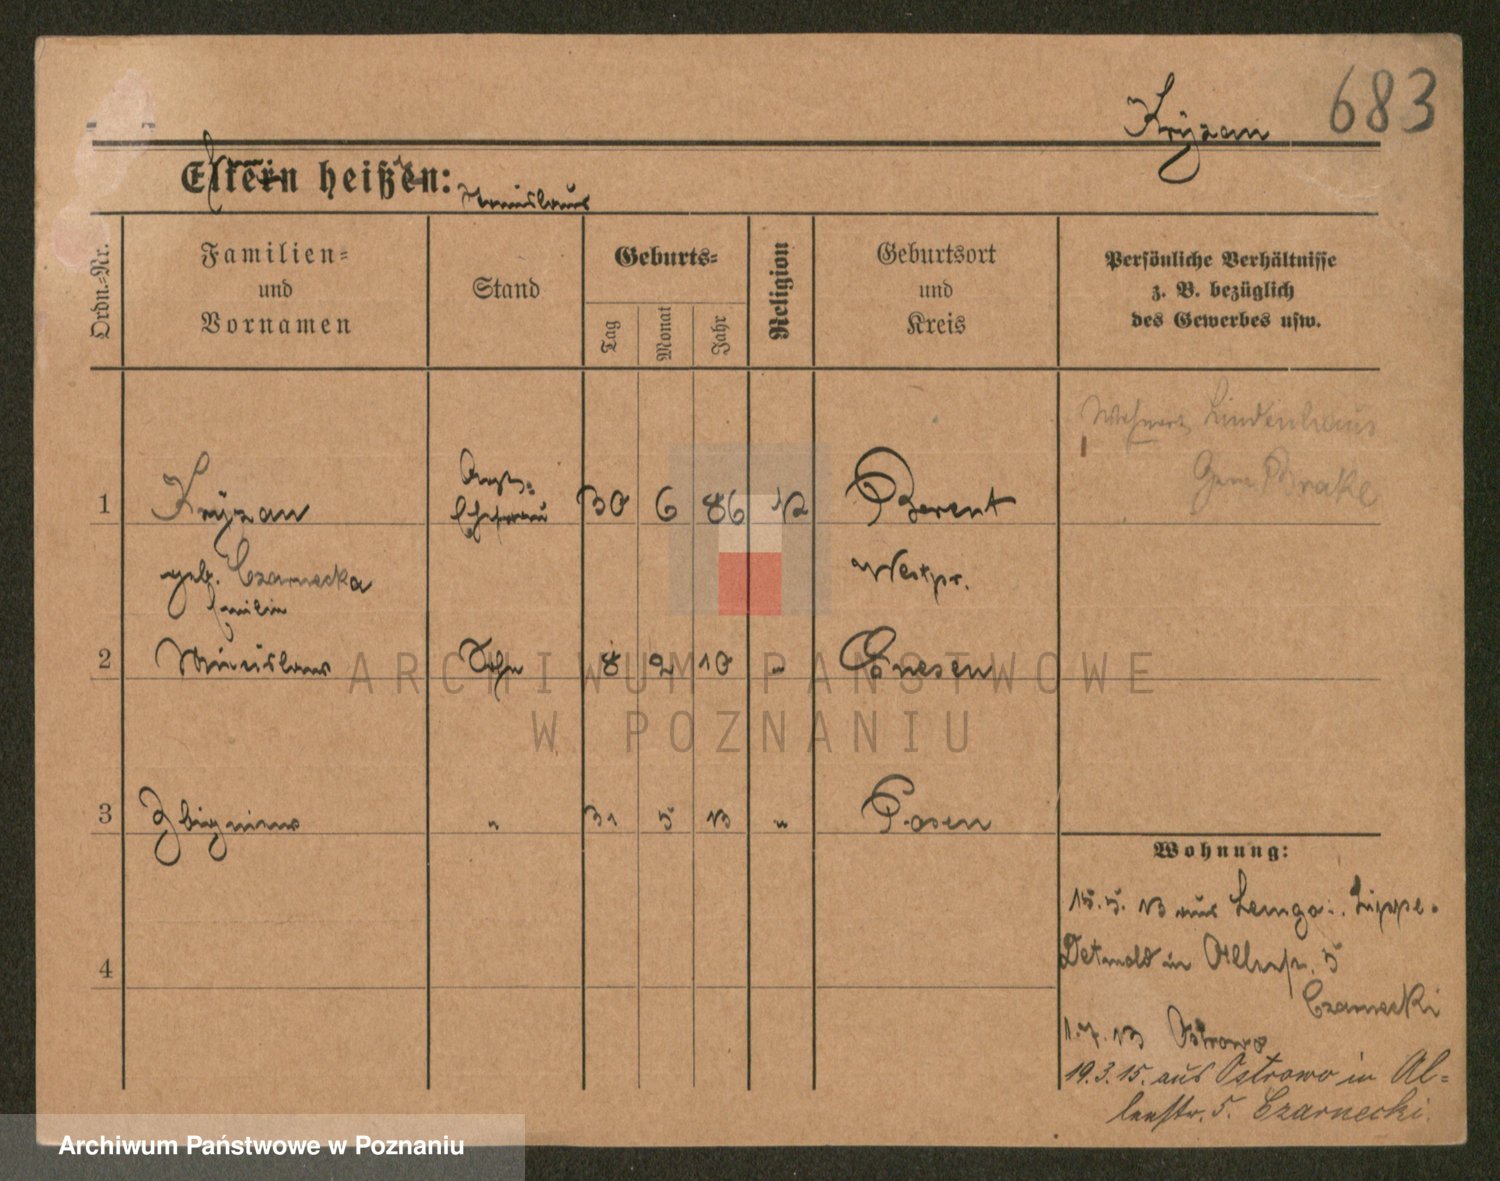 Kryzan 683
Eltern heißen:
Ordn.-Nr.
Familien-
und
Vornamen
Stand
Geburts-
Tag
Monat
Jahr
Religion
Geburtsort
und
Kreis
Persönliche Verhältnisse
z. B. bezüglich
des Gewerbes usw.
Lindenhaus
Brake
1 Krÿzan Arzt- Ehefrau 30 6 86 Berent
geb. Czarnecka Westpr.
Emilie
2 Mieczislaus Sohn 8 2 10 " Gnesen
3 Zbigniew " 31 5 13 " Posen
4
Wohnung:
15.5.13 aus Lemgo Lippe-
Detmold in Allenstr. 5
Czarnecki
1.7.13 Ostrowo
19.3.15. aus Ostrowo in Al-
lenstr. 5. Czarnecki.
ARCHIWUM PAŃSTWOWE
W POZNANIU
Archiwum Państwowe w Poznaniu